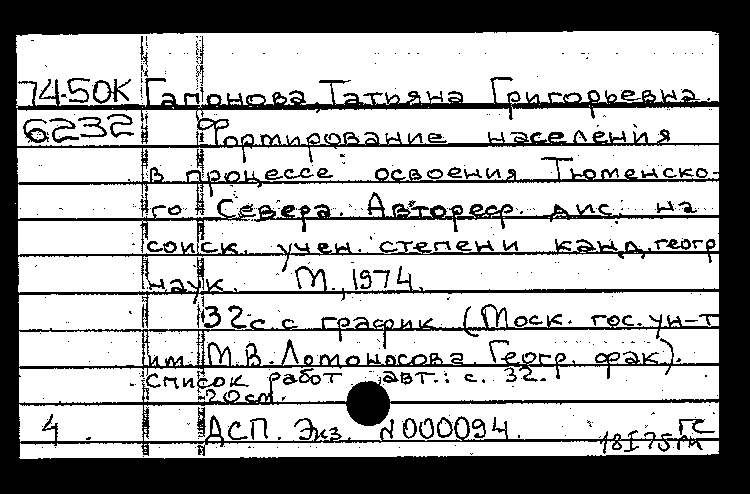 74-50К Гапонова, Татьяна Григорьевна.
6232 Формирование населения
в процессе освоения Тюменско-
го Севера. Автореф. дис. на
соиск. учен. степени канд. геогр
наук. М., 1974.
32 с. с график. (Моск. гос. ун-т
им. М.В. Ломоносова. Геогр. фак).
Список работ авт.: с. 32.
20 см.
4. ДСП. Экз. N000094.
ГС
18I75